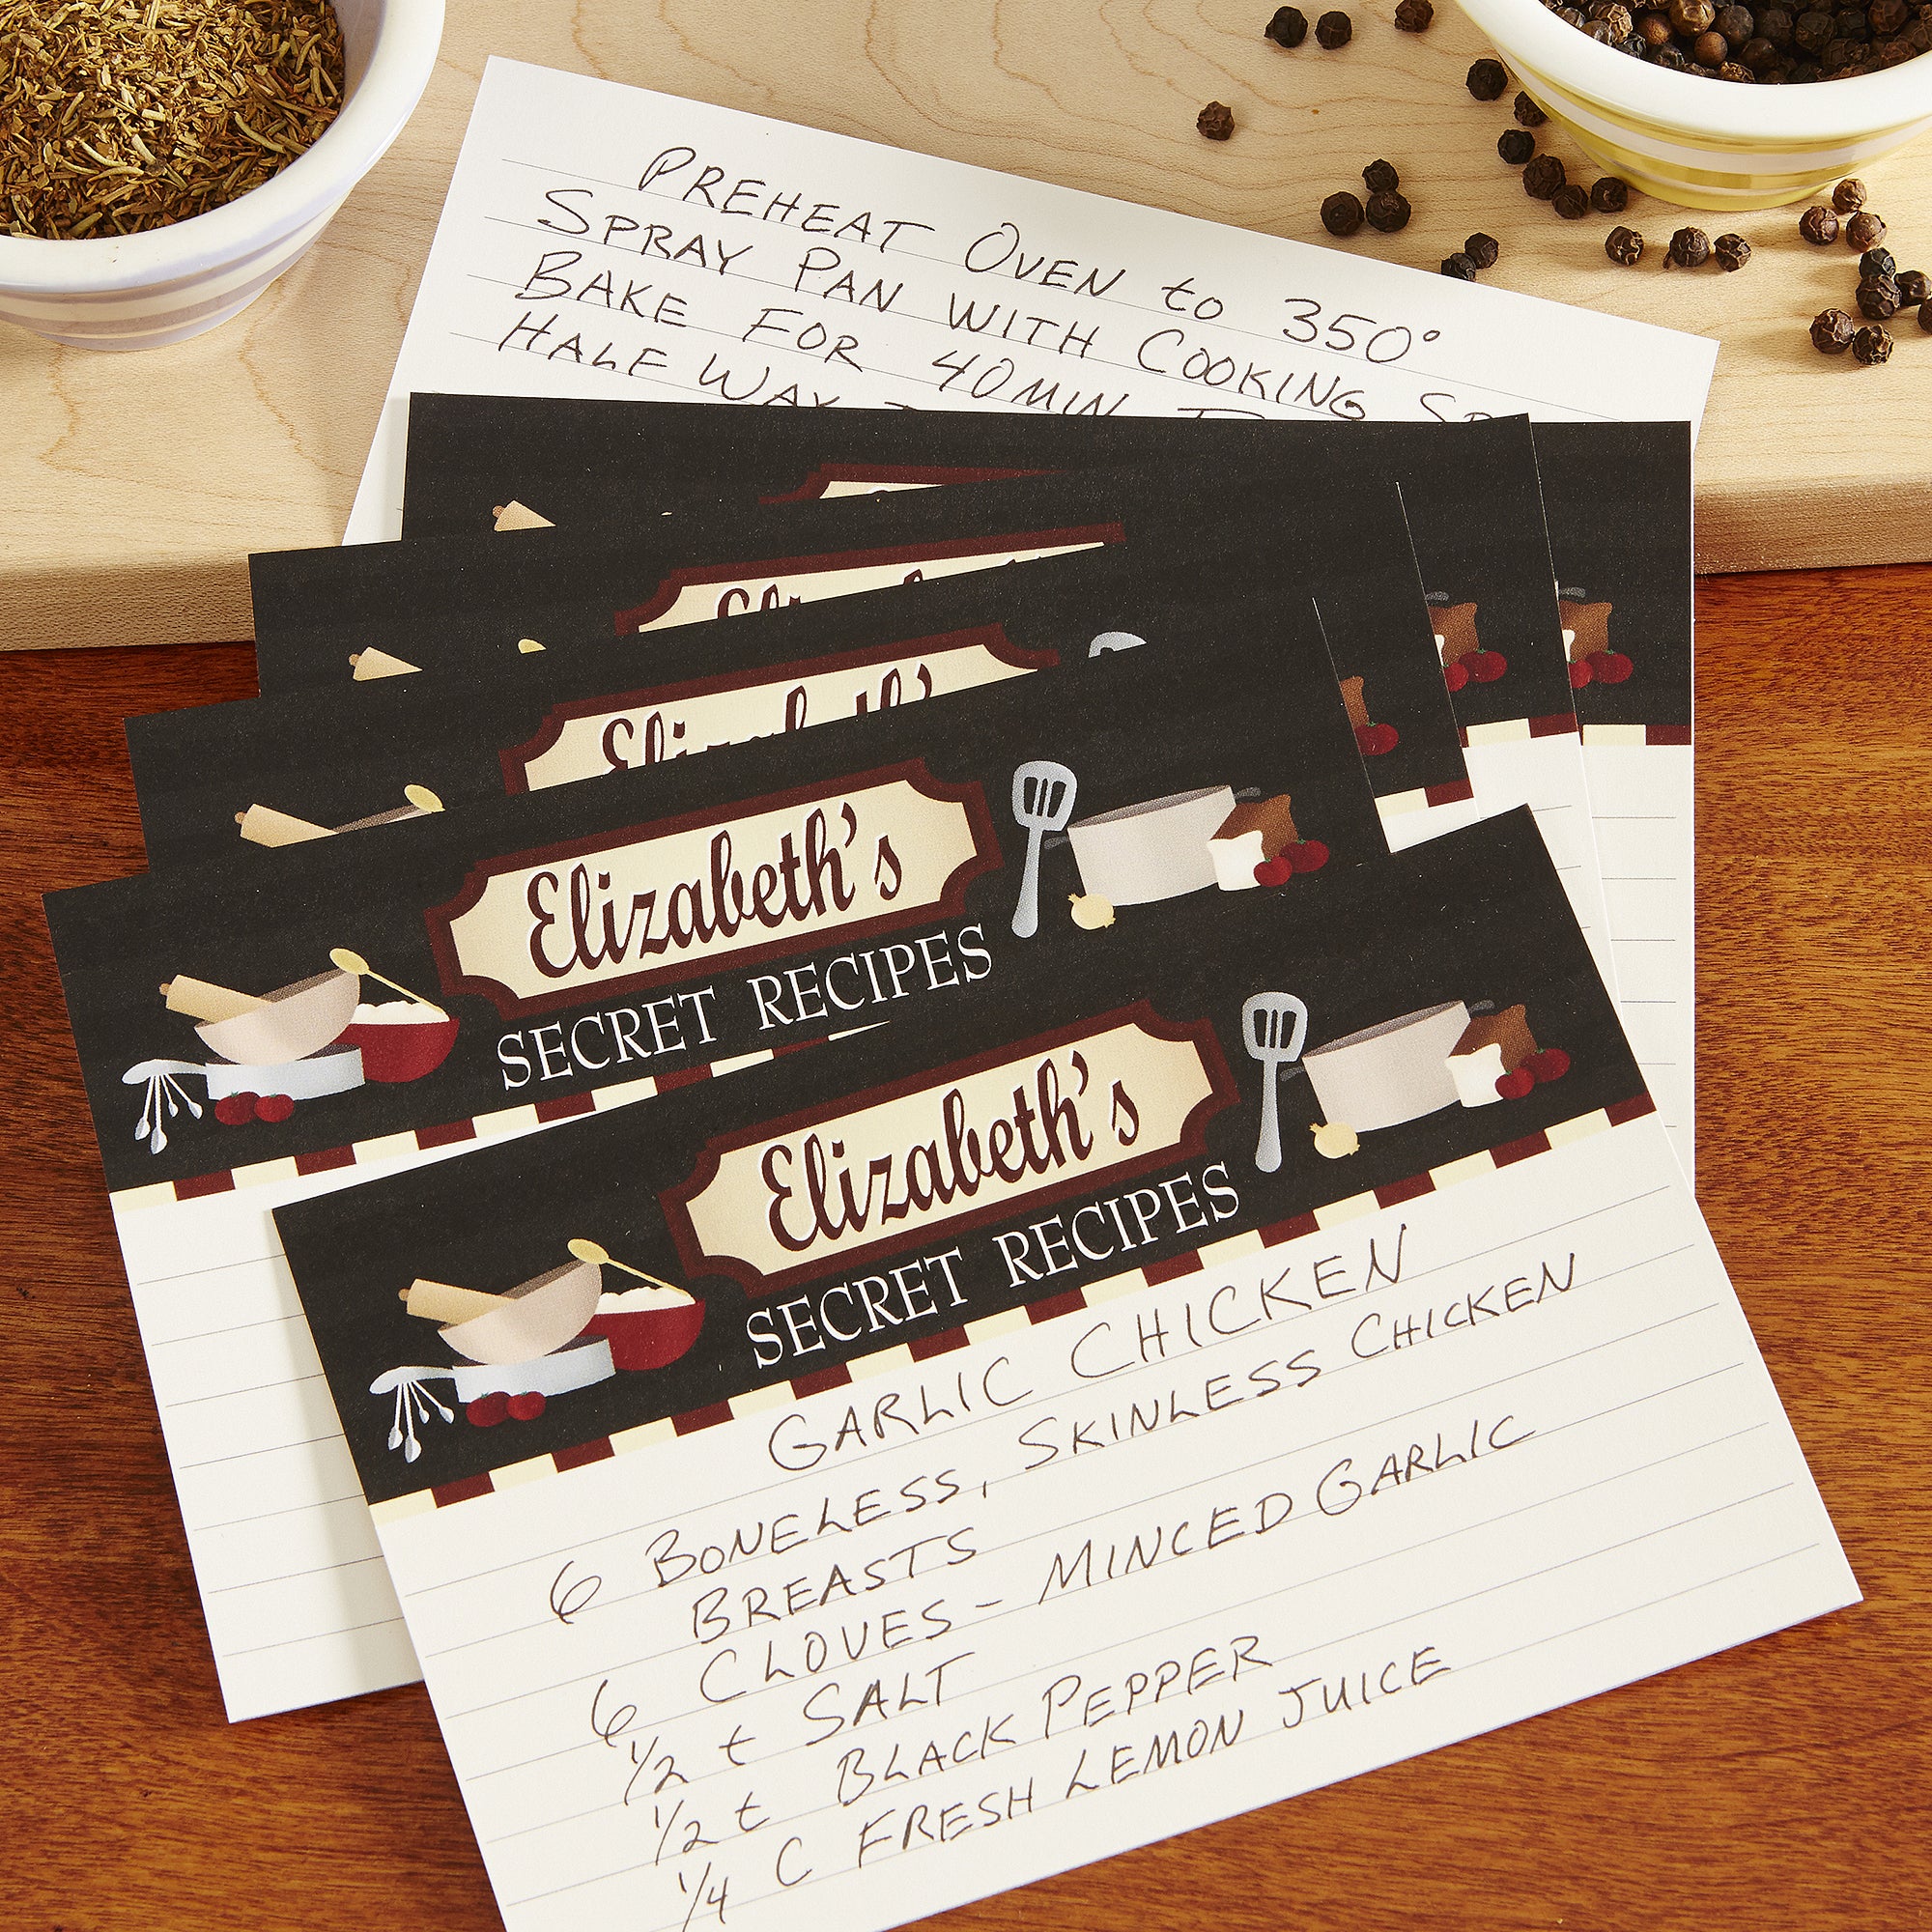 PREHEAT OVEN to 350°
SPRAY PAN WITH COOKING
BAKE FOR 40 MIN
HALF WAY
Elizabeth's
SECRET RECIPES
Elizabeth's
SECRET RECIPES
GARLIC CHICKEN
6 BONELESS, SKINLESS CHICKEN
BREASTS
6 CLOVES - MINCED GARLIC
1/2 t SALT
1/2 t BLACK PEPPER
1/4 C FRESH LEMON JUICE